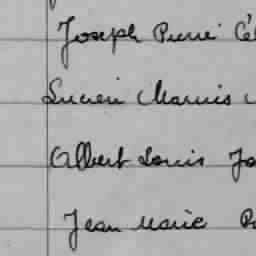 Joseph Pierre Cé
Lucien Marius
Albert Louis Jo
Jean Marie